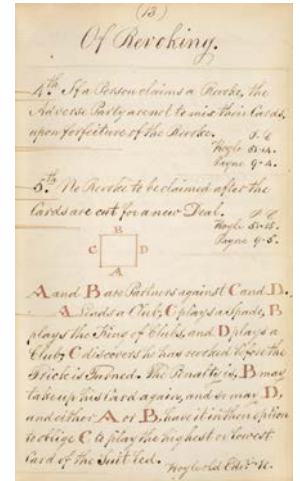 (13)
Of Revoking.
4th If a Person claims a Revoke, the
Adverse Party are not to mix their Cards,
upon forfeiture of the Revoke.
Hoyle
Payne 9-4.
5th No Revoke to be claimed after the
Cards are cut for a new Deal.
Hoyle
Payne 9-5.
B
C D
A
A and B are Partners against C and D.
A Leads a Club, C plays a Spade, B
plays the King of Clubs, and D plays a
Club, C discovers he has revoked before the
Trick is Turned. The Penalty is, B may
take up his Card again, and so may D,
and either A or B, have it in their option
to oblige C to play the highest or lowest
Card of the Suit led.
Hoyle old Edn.